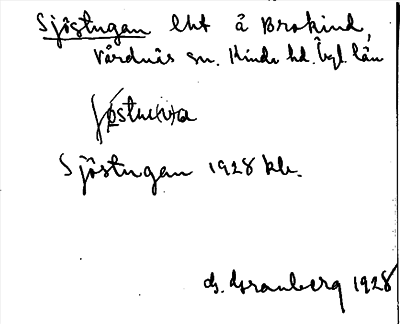 Sjöstugan lht å Brokind,
Vårdnäs sn. Kinda hd. Ögl. län
Sjöstugan 1928 kb.
G. Granberg 1928